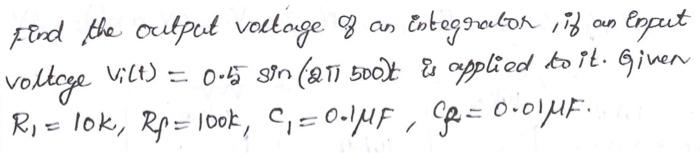 Find the output voltage of an integrator, if an input
voltage Vi(t) = 0.5 sin (2π 500)t is applied to it. Given
R₁ = 10k, Rf = 100k, C₁ = 0.1μF, Cf = 0.01μF.